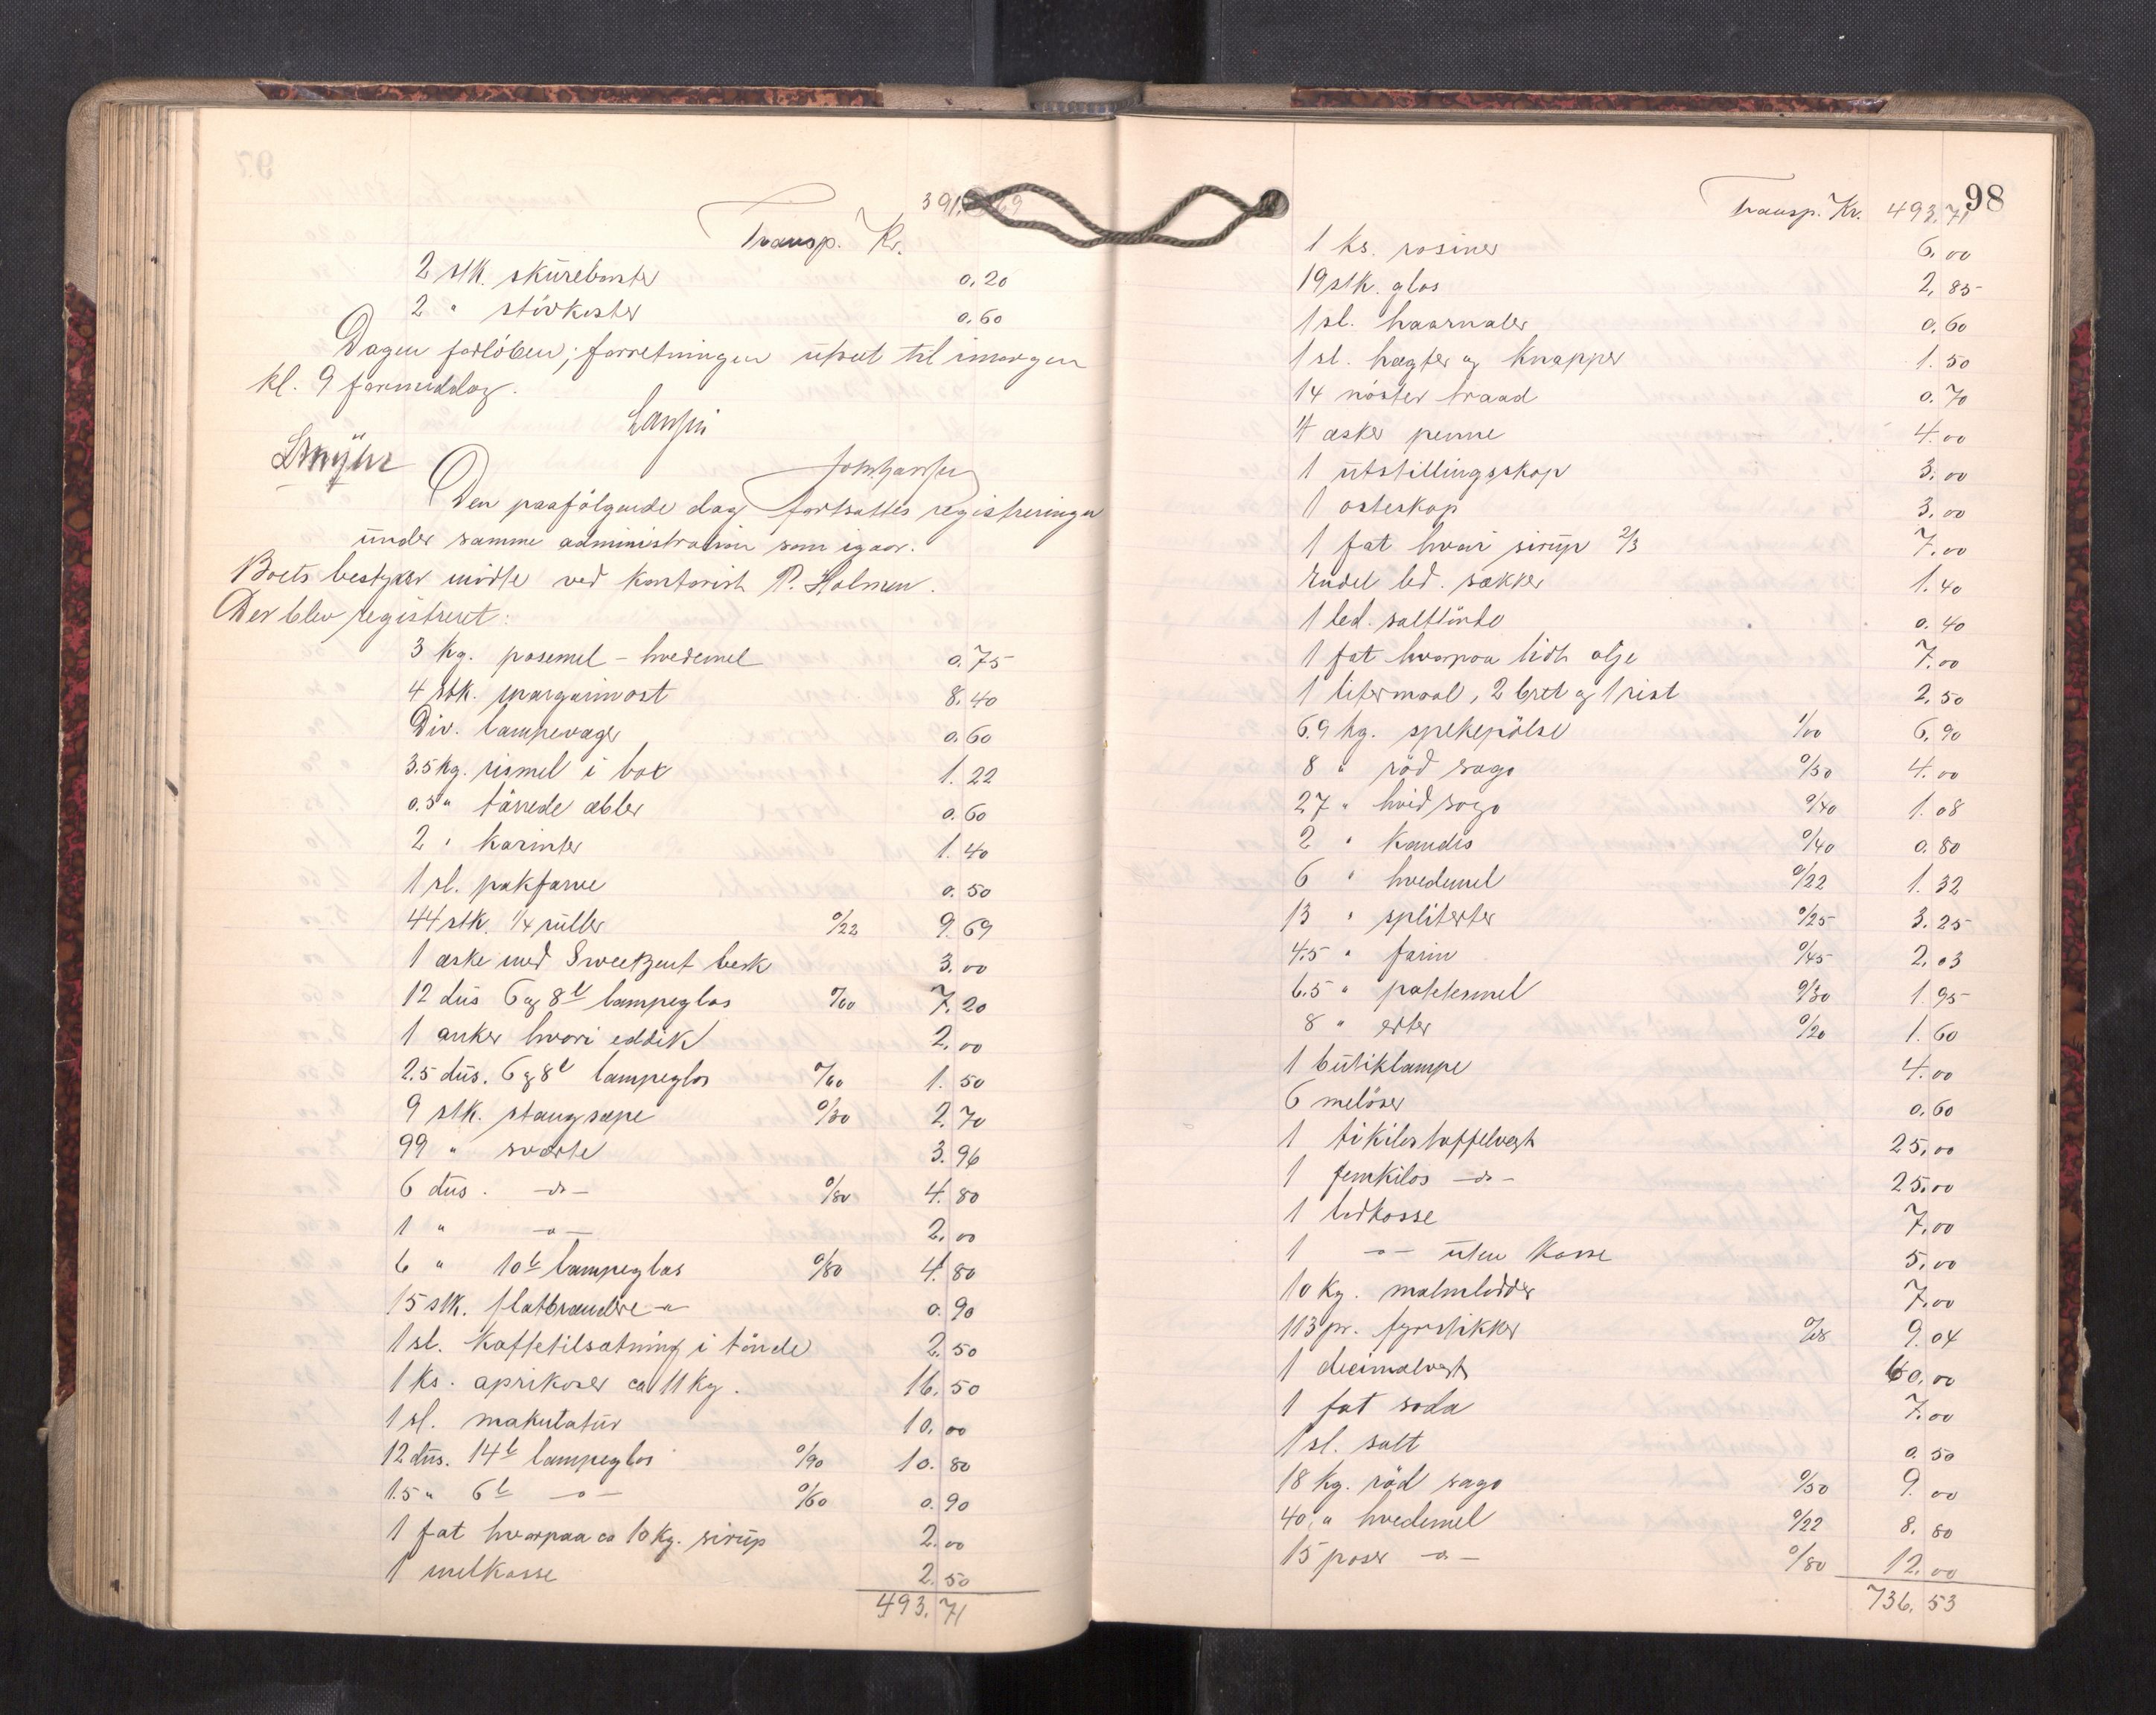 Transp. Kr. 391. 69
2 stk. skürebørster 0.20
2 " støvkoster 0.60
Dagen forløben; forretningen ütsat til imorgen
kl. 9 formiddag.
Den paafølgende dag fortsattes registreringen
ünder samme administration som igaar.
Boets bestyrer mødte ved kontorist P. Holmen.
Der blev registreret:
3 kg. posemel - hvedemel 0.75
4 stk. margarinost 8.40
Div. lampevæger 0.60
3.5 kg. rismel i box 1.22
0.5 " tørrede æbler 0.60
2 " korinter 1.40
1 sl. pakfarve 0.50
44 stk. 1/4 rüller 0/22 9.69
1 æske med besk 3.00
12 düs 6 og 8 l lampeglas 0/60 7.20
1 anker hvori eddik 2.00
2.5 düs. 6 og 8 l lampeglas 0/60 1.50
9 stk. stangsæpe 0/30 2.70
99 " sværte 3.96
6 düs. -do- 0/80 4.80
1 " -"- 2.00
6 " 10 l lampeglas 0/80 4.80
15 stk. flatbrændere -"- 0.90
1 sl. kaffetilsætning i tønde 2.50
1 ks. aprikoser ca 11 kg. 16.50
1 sl. makulatür 10.00
12 düs. 14 l lampeglas 0/90 10.80
1.5 " 6 l -"- 0/60 0.90
1 fat hvorpaa ca 10 kg. sirüp 2.00
1 melkasse 2.50
493.71
98
Transp. Kr. 493.71
1 ks. rosiner 6.00
19 stk. glas 2.85
1 sl. haarnaler 0.60
1 sl. hægter og knapper 1.50
14 nøster traad 0.70
4 æsker penne 4.00
1 ütstillingsskap 3.00
1 osteskap 3.00
1 fat hvori sirüp 2/3 7.00
Endel led. sækker 1.40
1 led. salttønde 0.40
1 fat hvorpaa lidt olje 7.00
1 litermaal, 2 bret og 1 rist 2.50
6.9 kg. spekepølse 1/00 6.90
8 " rød sago 0/50 4.00
27 " hvid sago 0/40 1.08
2 " kandis 0/40 0.80
6 " hvedemel 0/22 1.32
13 " spliterter 0/25 3.25
4.5 " farin 0/45 2.03
6.5 " potetesmel 0/30 1.95
8 " erter 0/20 1.60
1 bütiklampe 4.00
6 meløser 0.60
1 tikilos taffelvegt 25.00
1 femkilos -do- 25.00
1 lodkasse 7.00
1 -"- üten kasse 5.00
10 kg. malmlodder 7.00
113 pr. fyrstikker 0/08 9.04
1 decimalvegt 60.00
1 fat soda 7.00
1 sl. salt 0.50
18 kg. rød sago 0/50 9.00
40 " hvedemel 0/22 8.80
15 poser -"- 0/80 12.00
736.53